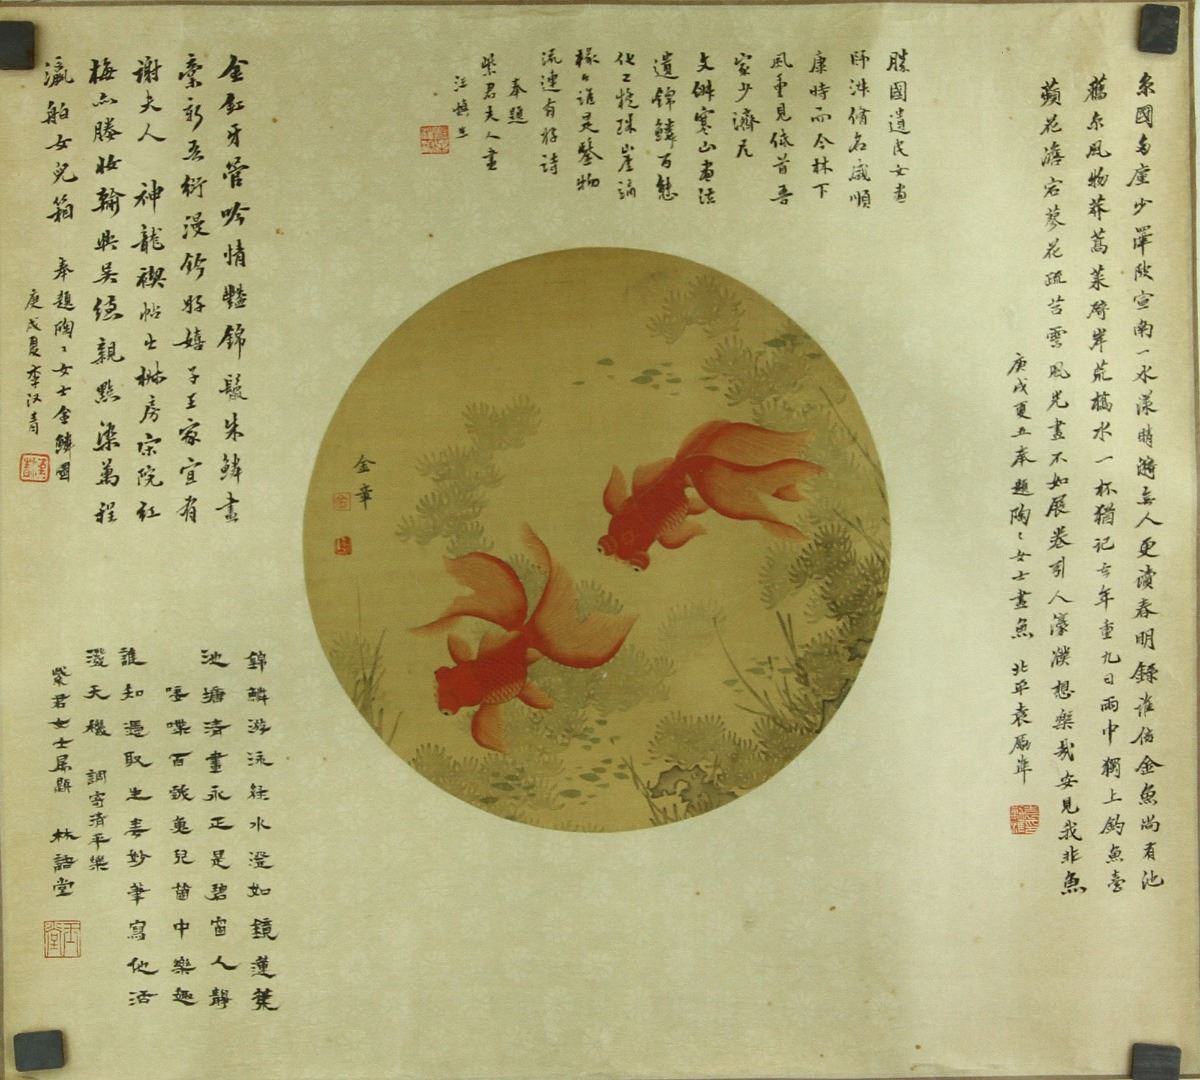 京國多塵少澤陂宣南一水漾晴漪無人更讀春明錄誰信金魚尚有池
舊京風物莽蒿萊廢岸荒橋水一杯猶記去年重九日雨中獨上釣魚臺
蘋花澹宕蓼花疏苕霅風光畫不如展卷引人濠濮想樂哉安見我非魚
庚戌夏五奉題陶〻女士畫魚 北平袁勵準
勝國遺民女畫
師洙脩名歲順
康時而今林下
風重見低首吾
家少濟尼
文俶寒山畫法
遺錦鱗百態
化工
誰是鑒物
流連有好詩
奉題
紫君夫人畫
汪慎生
金章
金釭牙管吟情豔錦鬣朱鱗畫
稾新吾衍漫矜好嬉子王家宜有
謝夫人 神龍禊帖 房宗院紅
梅亦媵妝翰與吳縑親點染萬程
瀛舶女兒箱 奉題陶〻女士金鱗圖
庚戌夏李汉青
錦鱗游泳綠水澄如鏡蓮葉
池塘清晝永正是碧窗人靜
唼喋百戲 兒箇中樂趣
誰知還取生春妙筆寫他活
潑天機 調寄清平樂
紫君女士屬題 林語堂